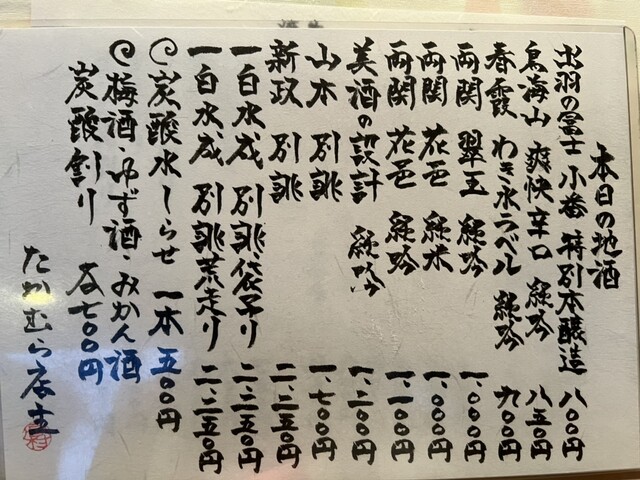 本日の地酒
出羽の冨士 小番 特別本醸造 八〇〇円
鳥海山 爽快辛口 純吟 八五〇円
春霞 わき水ラベル 純吟 九〇〇円
両関 翠玉 純吟 一、〇〇〇円
両関 花邑 純米 一、〇〇〇円
両関 花邑 純吟 一、一〇〇円
美酒の設計 純吟 一、二〇〇円
山本 別誂 一、七〇〇円
新政 別誂 二、二五〇円
一白水成 別誂、袋予り 二、二五〇円
一白水成 別誂荒走り 二、二五〇円
炭酸水しらせ 一本 五〇〇円
梅酒・ゆず酒・みかん酒
炭酸割り 各七〇〇円
たかむら店主